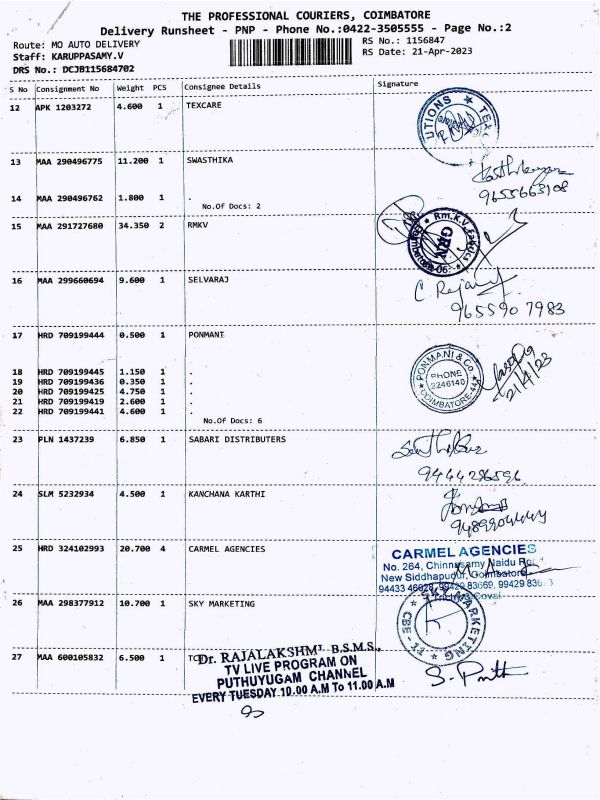 THE PROFESSIONAL COURIERS, COIMBATORE
Delivery Runsheet - PNP - Phone No.:0422-3505555 - Page No.:2
Route: MO AUTO DELIVERY
RS No.: 1156847
Staff: KARUPPASAMY.V
RS Date: 21-Apr-2023
DRS No.: DCJB115684702
S No Consignment No Weight PCS Consignee Details Signature
12 APK 1203272 4.600 1 TEXCARE
13 MAA 290496775 11.200 1 SWASTHIKA
9655663108
14 MAA 290496762 1.800 1 .
No.Of Docs: 2
15 MAA 291727680 34.350 2 RMKV
Rm.K.V. Fabrics
GRN
16 MAA 299660694 9.600 1 SELVARAJ
9655907983
17 HRD 709199444 0.500 1 PONMANI
PONMANI & Co.
PHONE
2246140
COIMBATORE-44
21/4/23
18 HRD 709199445 1.150 1 .
19 HRD 709199436 0.350 1 .
20 HRD 709199425 4.750 1 .
21 HRD 709199419 2.600 1 .
22 HRD 709199441 4.600 1 .
No.Of Docs: 6
23 PLN 1437239 6.850 1 SABARI DISTRIBUTERS
9444286596
24 SLM 5232934 4.500 1 KANCHANA KARTHI
25 HRD 324102993 20.700 4 CARMEL AGENCIES
CARMEL AGENCIES
No. 264, Chinnasamy Naidu Road
New Siddhapudur, Coimbatore
94433 46028, 99429 83669, 99429 836
26 MAA 298377912 10.700 1 SKY MARKETING
SKY MARKETING
CBE - 11
27 MAA 600105832 6.500 1
Dr. RAJALAKSHMI B.S.M.S.,
TV LIVE PROGRAM ON
PUTHUYUGAM CHANNEL
EVERY TUESDAY 10.00 A.M To 11.00 A.M